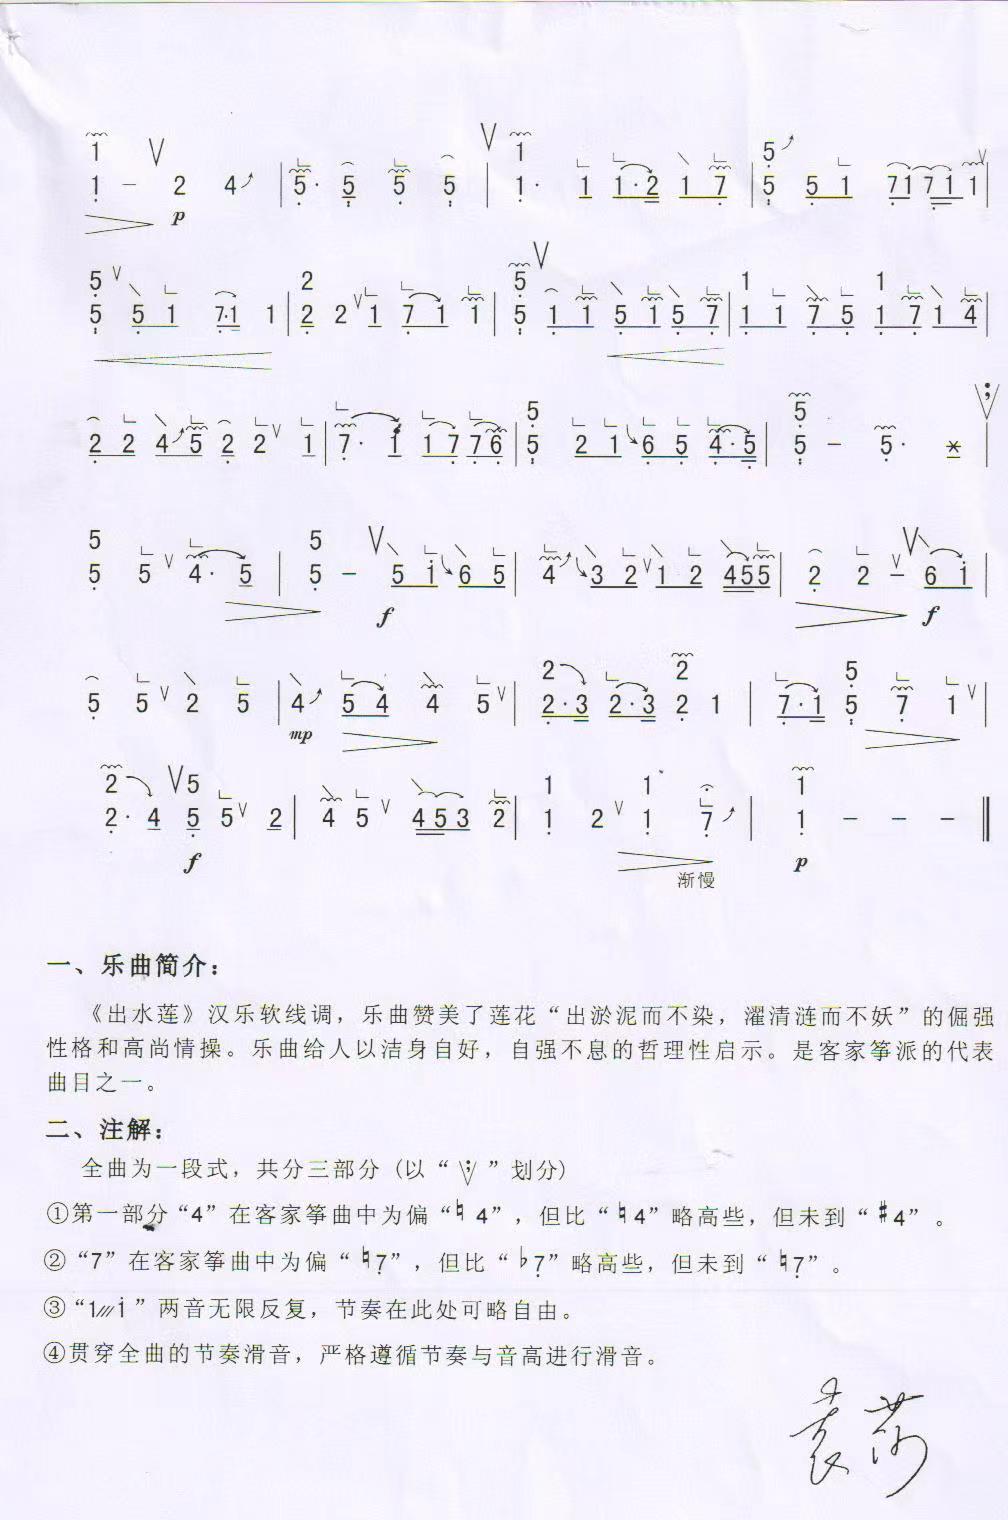 1 V 1 V 5
1 - 2 4 | 5· 5 5 5 | 1· 1 1·2 1 7 | 5 5 1 7 1 7 1 1 |
p
5 V 2 5 V 1 1
5 5 1 7·1 1 | 2 2 V 1 7 1 1 | 5 1 1 5 1 5 7 | 1 1 7 5 1 7 1 4 |
5 5
2 2 4 5 2 2 V 1 | 7· 1 1 7 7 6 | 5 2 1 6 5 4·5 | 5 - 5· * |
5 5 V V
5 5 V 4· 5 | 5 - 5 i 6 5 | 4 3 2 V 1 2 4 5 5 | 2 2 - V 6 i |
f f
2 2 5
5 5 V 2 5 | 4 5 4 4 5 V | 2·3 2·3 2 1 | 7·1 5 7 1 V |
mp
2 V 5 1 1 1
2· 4 5 5 V 2 | 4 5 V 4 5 3 2 | 1 2 V 1 7 | 1 - - - ‖
f p
渐慢
一、乐曲简介：
《出水莲》汉乐软线调，乐曲赞美了莲花“出淤泥而不染，濯清涟而不妖”的倔强
性格和高尚情操。乐曲给人以洁身自好，自强不息的哲理性启示。是客家筝派的代表
曲目之一。
二、注解：
全曲为一段式，共分三部分（以“ ”划分）
①第一部分“4”在客家筝曲中为偏“♮4”，但比“♮4”略高些，但未到“♯4”。
②“7”在客家筝曲中为偏“♮7”，但比“♭7”略高些，但未到“♮7”。
③“1///i”两音无限反复，节奏在此处可略自由。
④贯穿全曲的节奏滑音，严格遵循节奏与音高进行滑音。
袁莎